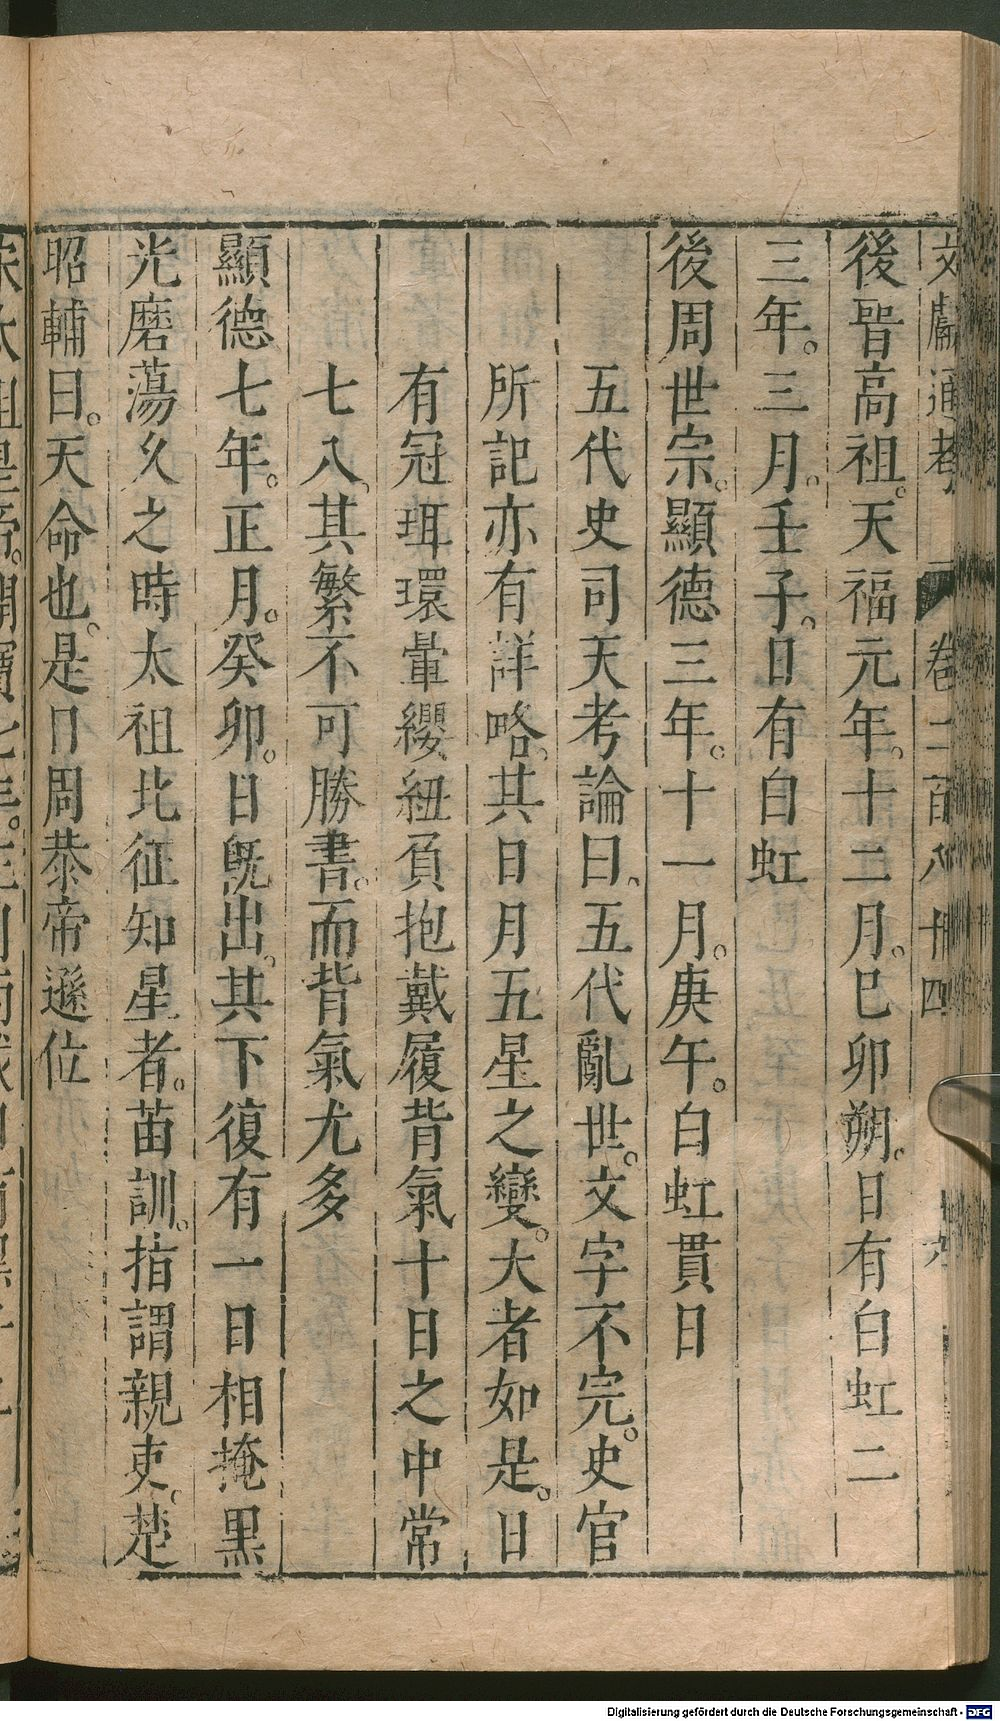 文獻通考 卷二百八十四
後晉高祖。天福元年。十二月。己卯朔。日有白虹二
三年。三月。壬子。日有白虹
後周世宗。顯德三年。十一月。庚午。白虹貫日
五代史司天考論曰。五代亂世。文字不完。史官
所記亦有詳略。其日月五星之變。大者如是。日
有冠珥環暈纓紐負抱戴履背氣十日之中常
七八。其繁不可勝書。而背氣尤多
顯德七年。正月。癸卯。日旣出。其下復有一日相掩黑
光磨蕩久之時太祖北征知星者。苗訓。指謂親吏。楚
昭輔曰。天命也。是日周恭帝遜位
Digitalisierung gefördert durch die Deutsche Forschungsgemeinschaft - DFG